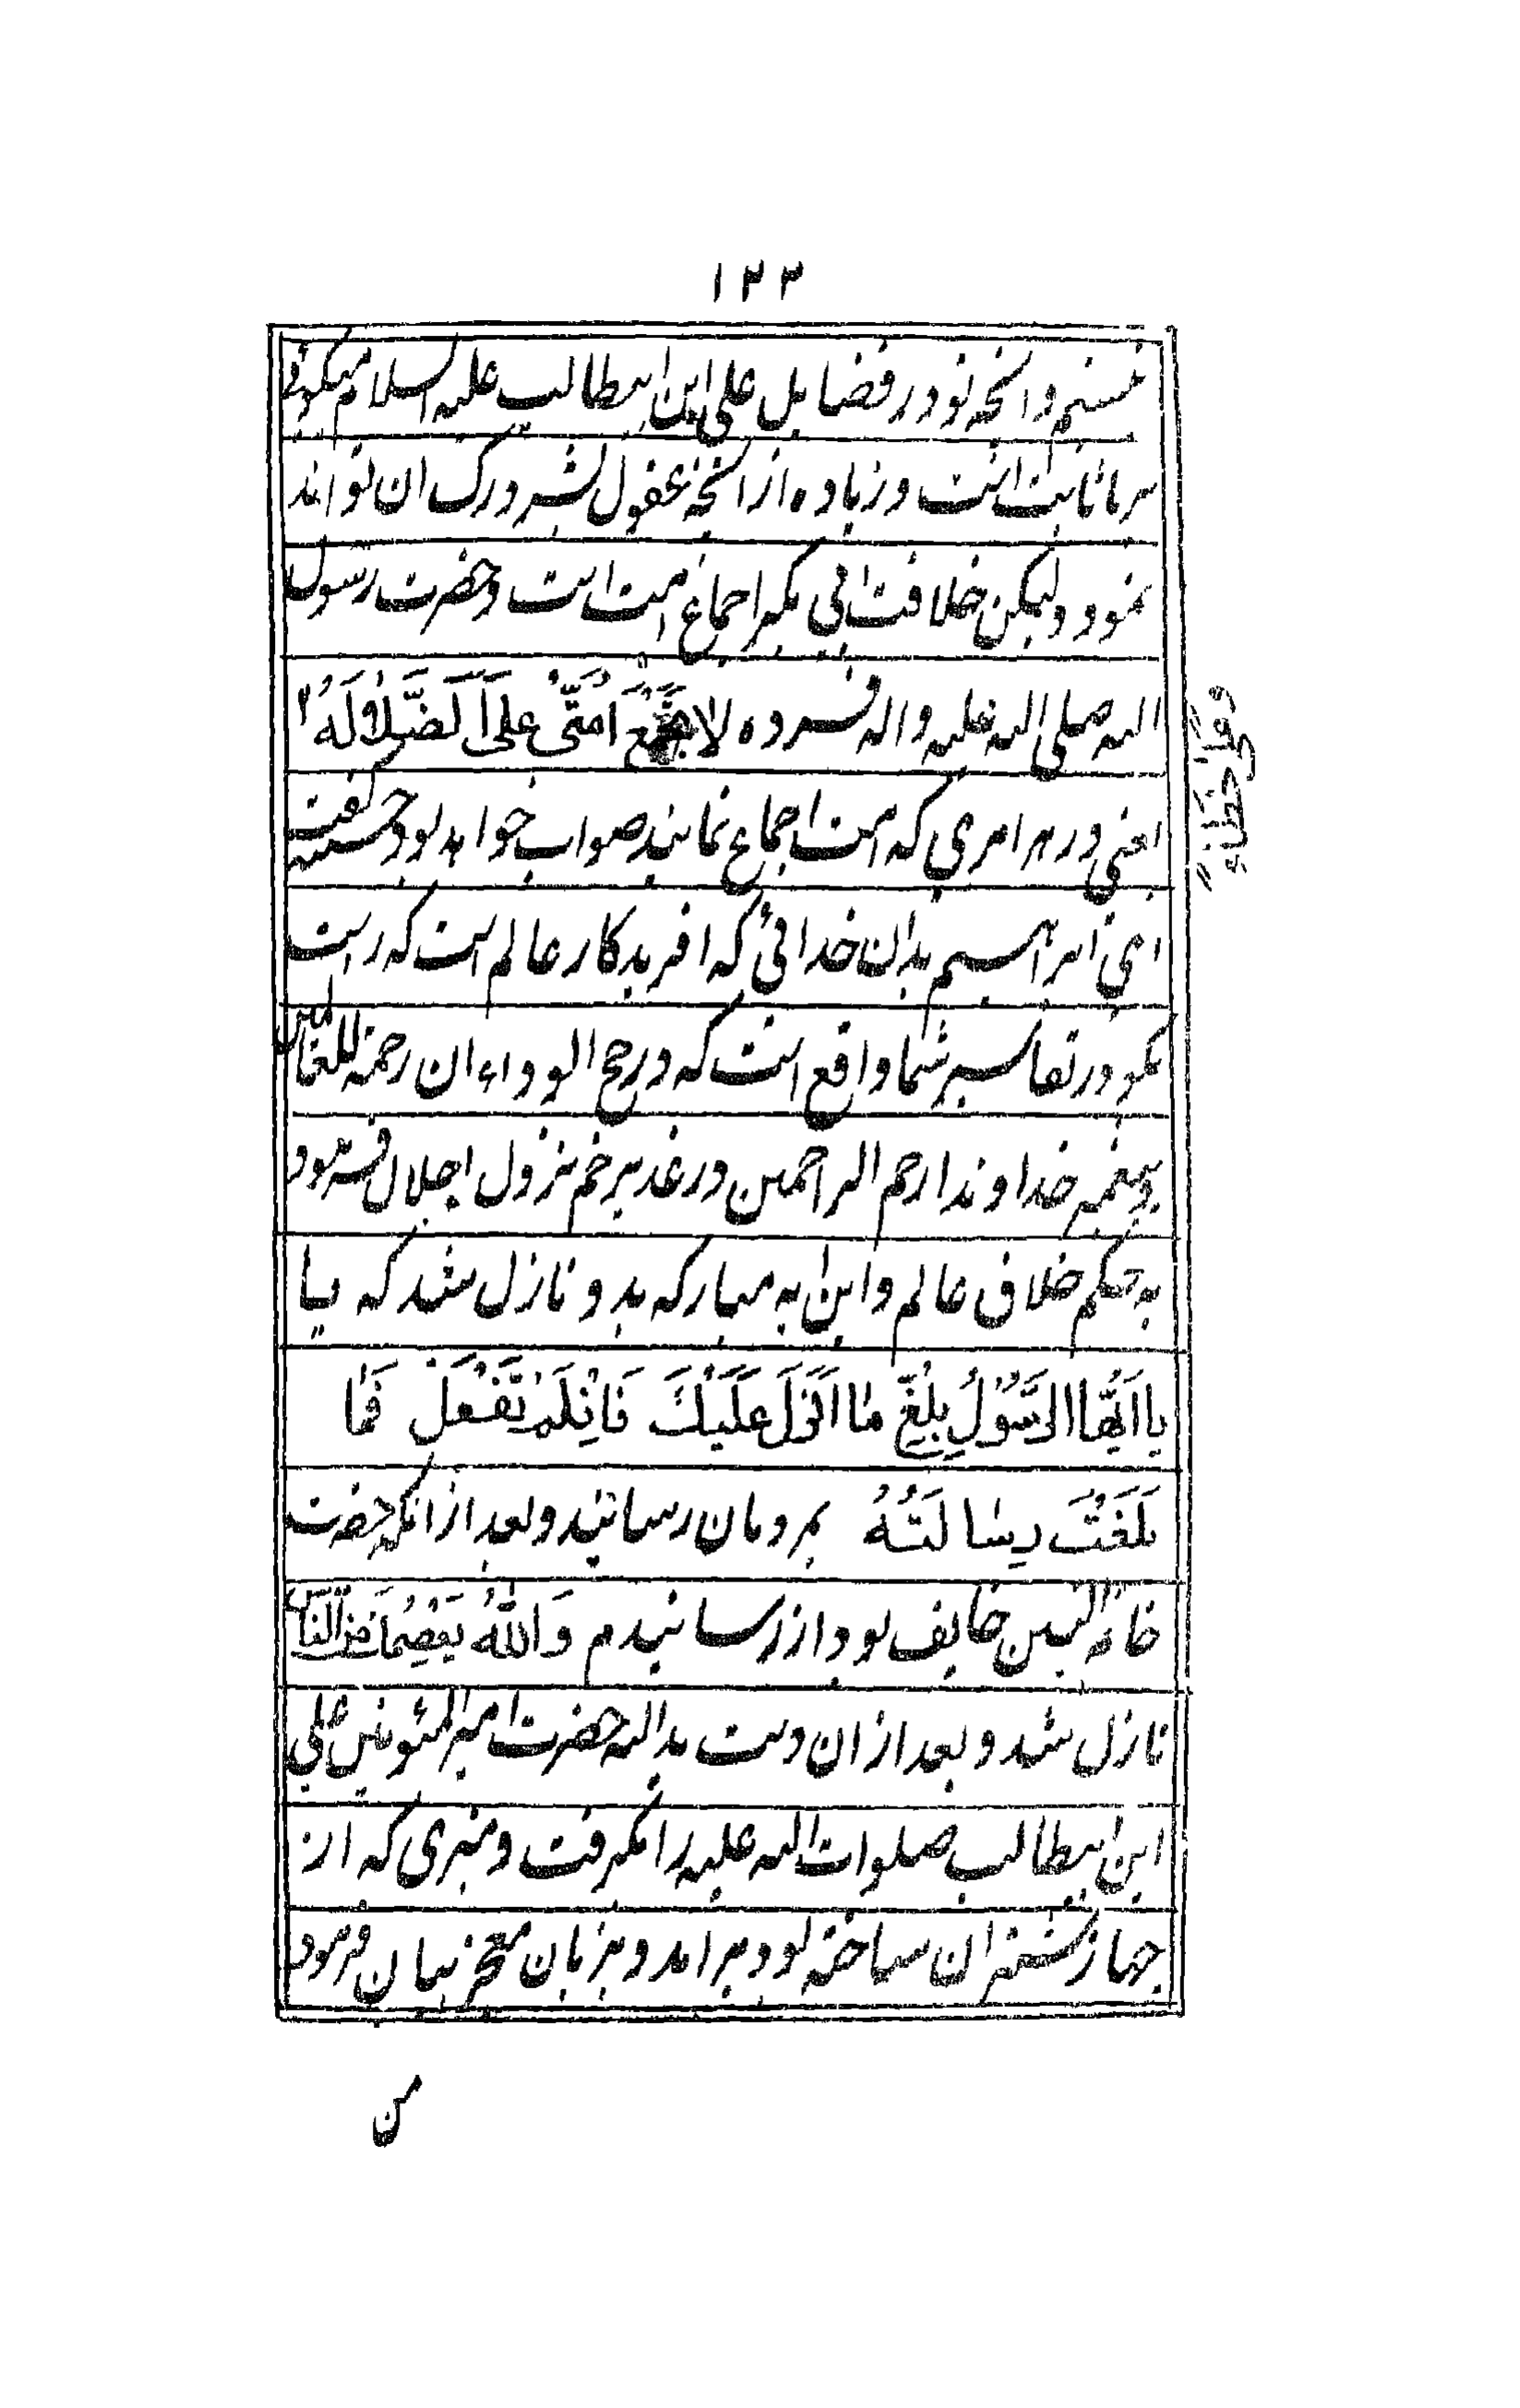 ۱۲۳
نیستم و انچه تو در فضایل علی ابن ابیطالب علیه السلام میگوئی
بر ما ثابت است و زیاده از انچه عقول بشر درک ان تواند
نمود ولیکن خلافت ابی بکر اجماع امت است و حضرت رسول
الله صلی الله علیه واله فرموده لا یجتمع اُمَّتی عَلَی اَلضَّلالَهُ
یعنی در هر امری که امت اجماع نمایند صواب خواهد بود حسنیه گفت
ای ابراهیم بدان خدائی که افریدکار عالم است که راست
بکو در تفاسیر شما واقع است که در حج الوداء ان رحمة للعالمین
و پیغمبر خداوند ارحم الراحمین در غدیر خم نزول اجلال فرمود
به حکم خلاق عالم و این ایه مبارکه بدو نازل شد که یا
یا اَیُّهَا الرَّسُوْلُ بَلِّغْ مٰا اُنْزِلَ عَلَیْكَ فَاِنْلَمْ تَفْعَلْ فَمٰا
بَلَغْتَ رِسٰالَتَهُ بمردمان رسانید و بعد از انکه حضرت
خاتم النبیین خایف بود از رسانیدم وَاللهُ یَعْصِمُكَ مِنَ النّاسِ
نازل شد و بعد از ان دست یدالله حضرت امیرالمئومنین علی
ابن ابیطالب صلوات الله علیه را بگرفت و منبری که از
جهاز شتران ساخته بود برامد و بزبان معجز بیان فرمود
من